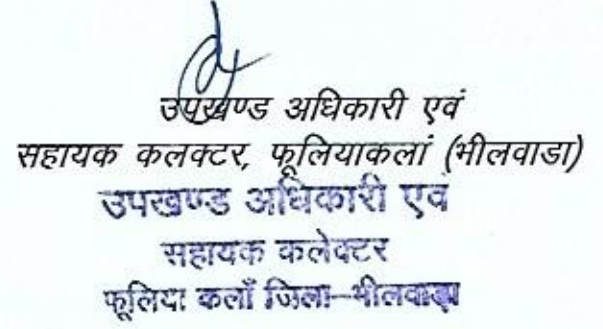 उपखण्ड अधिकारी एवं
सहायक कलक्टर, फूलियाकलां (भीलवाडा)
उपखण्ड अधिकारी एवं
सहायक कलेक्टर
फूलिया कलाँ जिला-भीलवाड़ा